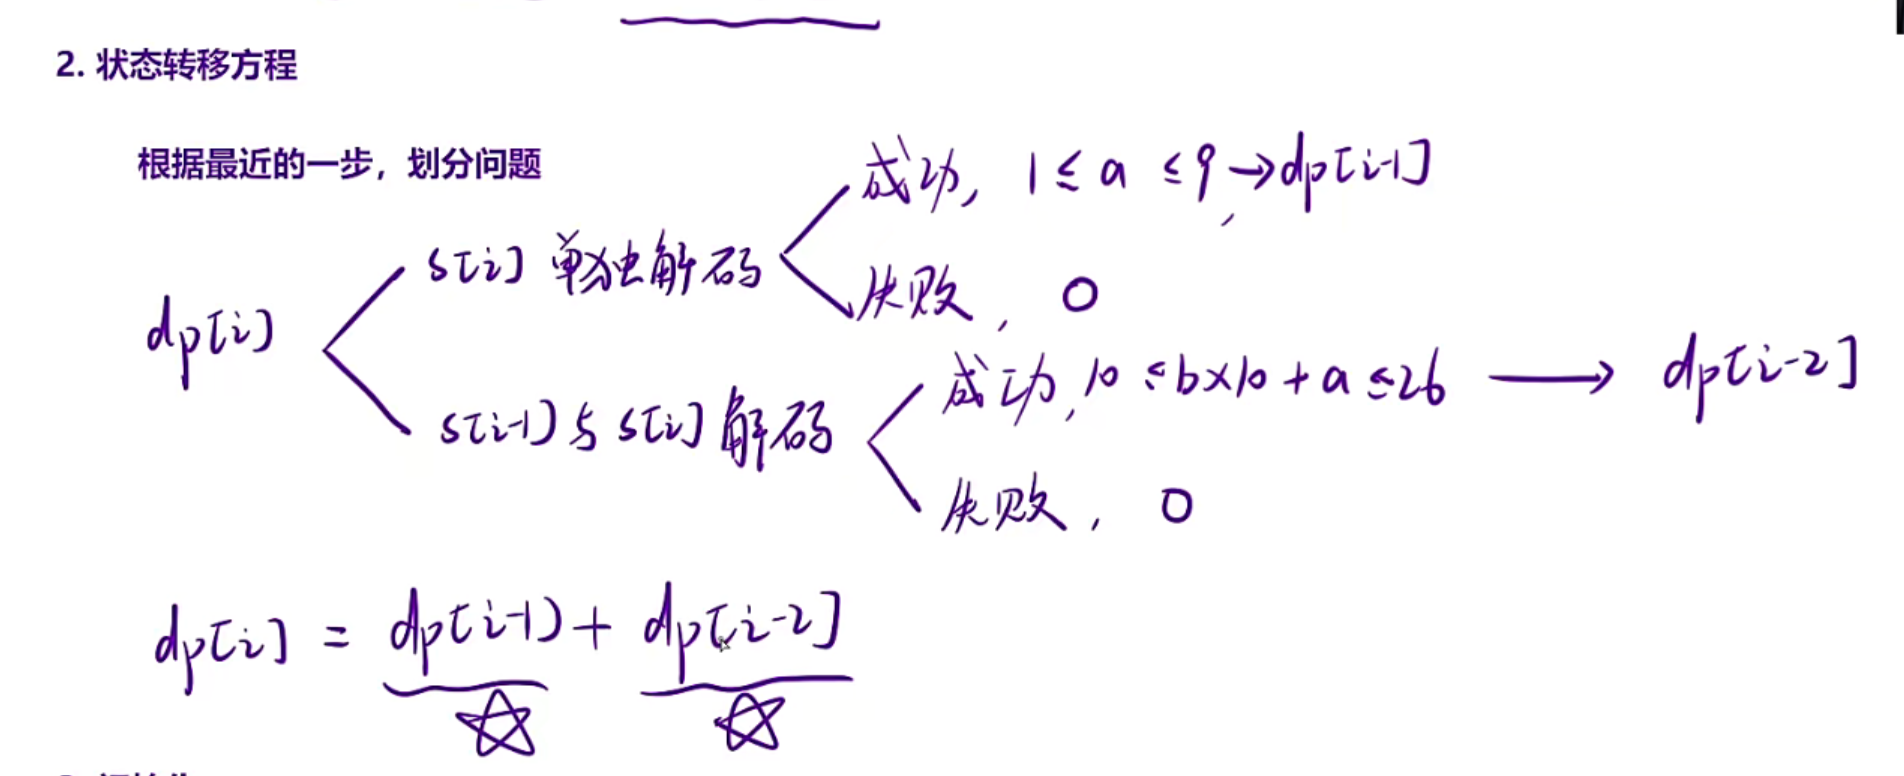 2. 状态转移方程
根据最近的一步，划分问题
成功, 1 ≤ a ≤ 9, → dp[i-1]
s[i] 单独解码
失败, 0
dp[i]
成功, 10 ≤ b×10 + a ≤ 26 → dp[i-2]
s[i-1] 与 s[i] 解码
失败, 0
dp[i] = dp[i-1) + dp[i-2]